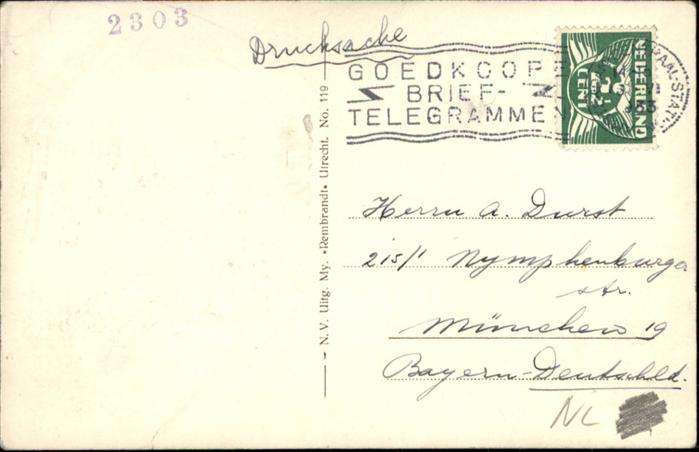 2303
Drucksache
GOEDKOOP
BRIEF-
TELEGRAMME
NEDERLAND
CENT
33
N. V. Uitg. My. „Rembrandt” Utrecht. No. 119
Herrn A. Durst
215/1 Nymphenburger
str.
München 19
Bayern-Deutschld.
NL